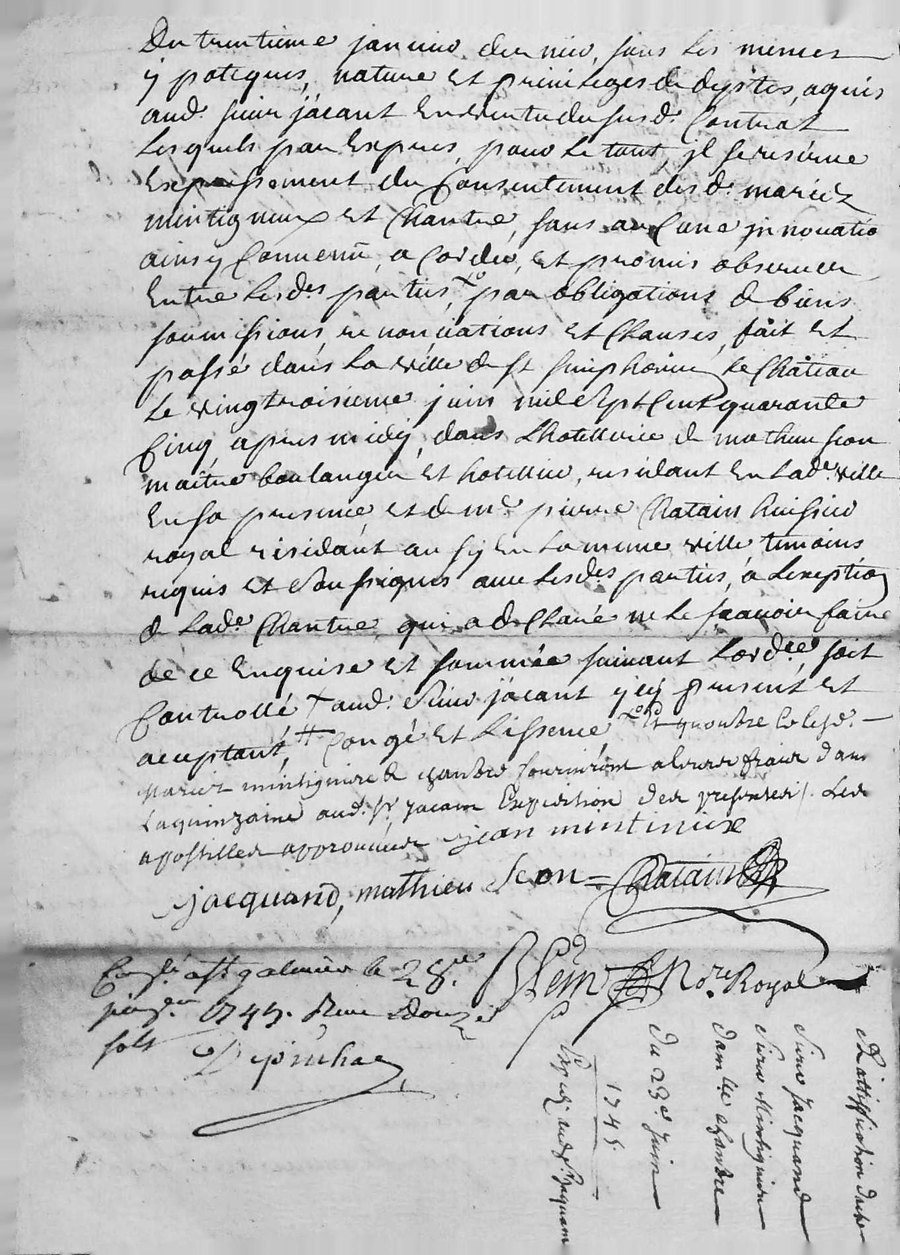 Du trentieme janvier dernier, sans les memes
ypoteques, nature et privileges de dystes, aquis
aud. sieur jacant en vertu du susd. Contrat
Lesquels par Exprès, pour le tout, jl se reserve
Expressement du Consentement desd. mariez
mintigneux et Chantre, sans aucune jnnovatio
ainsy Convenu, acordé, et promis observer
Entre lesdes parties, par obligations de biens
soumissions, renonciations et Clauses, fait et
passé dans la ville de st simphorien le Château
Le vingtroisieme juin mil sept Cent quarante
Cinq, apres midy, dans Lhotellerie de mathieu
maître boulanger et hotellier, residant En lade. ville
En sa presence, et de me. pierre Chatain huissier
royal résidant aussy En la meme ville temoins
requis et Soussignés avec lesdes parties, a Lexeption
de Lade. Chantre, qui a déClaré ne le scavoir faire
de ce Enquise et sommée suivant Lordce., soit
Controllé + aud. sieur jacant jcy present et
aceptant, ++ Congé et Lissence,
Mariez mintigniere & chantre fourniront a leurs fraix dans
Laquinzaine aud. sr. jacam Expedition des presentes /. Les
apostilles approuvées jean mintiniere
jacquand, mathieu Chatain
nore. Royal
a st galmier le 28e.
juin 1745. Reçu douze
sols
Rattiffication dacte
Sieur Jacquand
Sieur Mintigniere
Dam lle chantre
Du 23e. Juin
1745
Expedié aud sr Jaquam